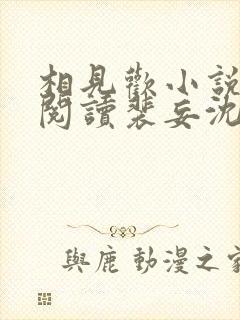 相見歡小說
閱讀裴妄沈
與鹿 動漫之家